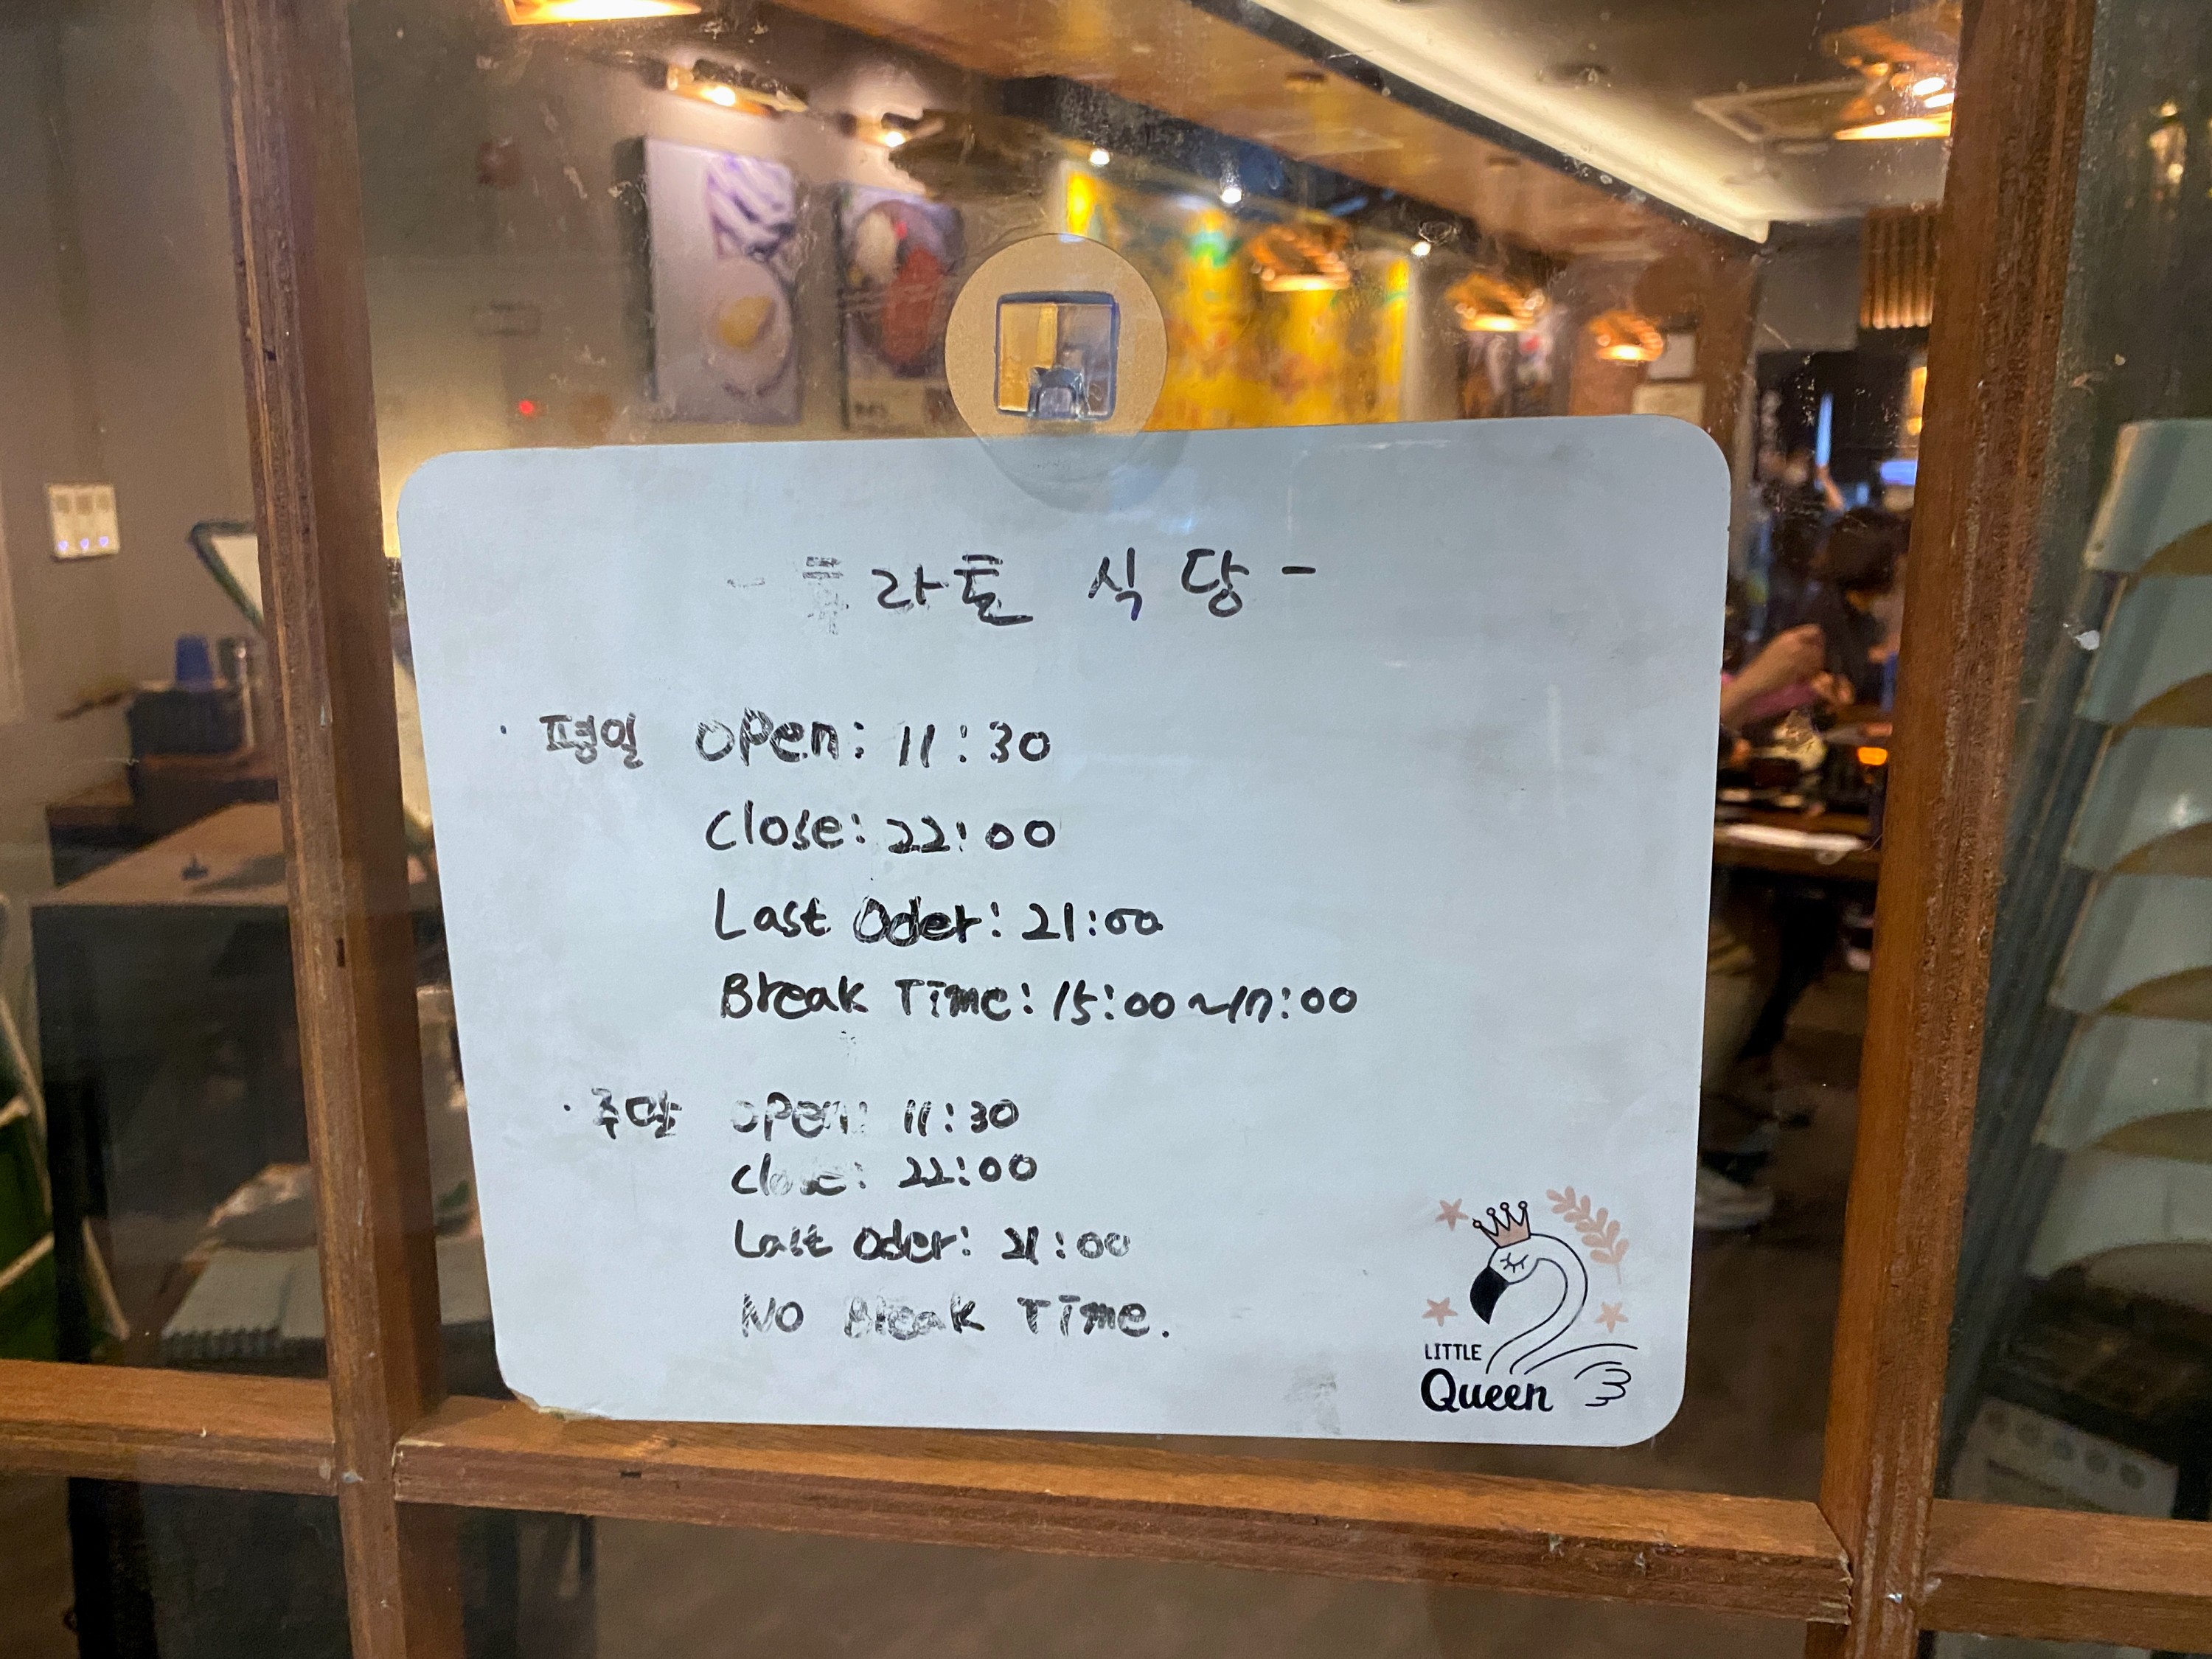 - 후라토 식당 -
· 평일 OPen: 11:30
Close: 22:00
Last Oder: 21:00
Break Time: 15:00~17:00
· 주말 OPen: 11:30
Close: 22:00
Last Oder: 21:00
NO Break Time.
LITTLE
Queen